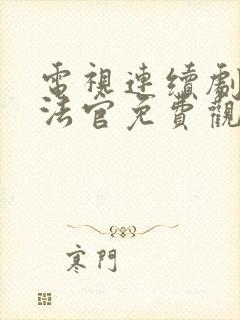 電視連續劇
法官免費觀
寒門